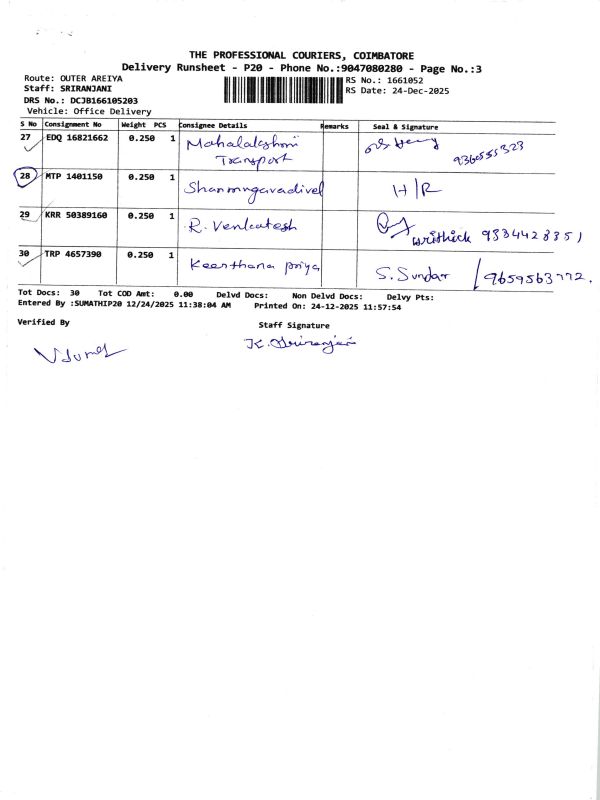 THE PROFESSIONAL COURIERS, COIMBATORE
Delivery Runsheet - P20 - Phone No.:9047080280 - Page No.:3
Route: OUTER AREIYA
RS No.: 1661052
Staff: SRIRANJANI
RS Date: 24-Dec-2025
DRS No.: DCJB166105203
Vehicle: Office Delivery
S No Consignment No Weight PCS Consignee Details Remarks Seal & Signature
27 EDQ 16821662 0.250 1 Mahalakshmi
Transport
28 MTP 1401150 0.250 1 Shanmugavadivel H/R
29 KRR 50389160 0.250 1 R. Venkatesh
9384428351
30 TRP 4657390 0.250 1 Keerthana priya S. Sundar / 9659563772.
Tot Docs: 30 Tot COD Amt: 0.00 Delvd Docs: Non Delvd Docs: Delvy Pts:
Entered By :SUMATHIP20 12/24/2025 11:38:04 AM Printed On: 24-12-2025 11:57:54
Verified By
Staff Signature
K. Sriranjani